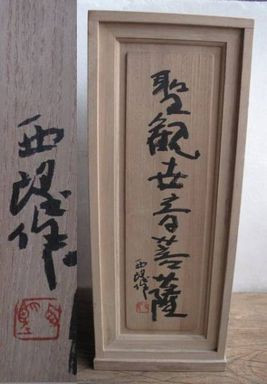 聖観世音菩薩
西望作
西望作